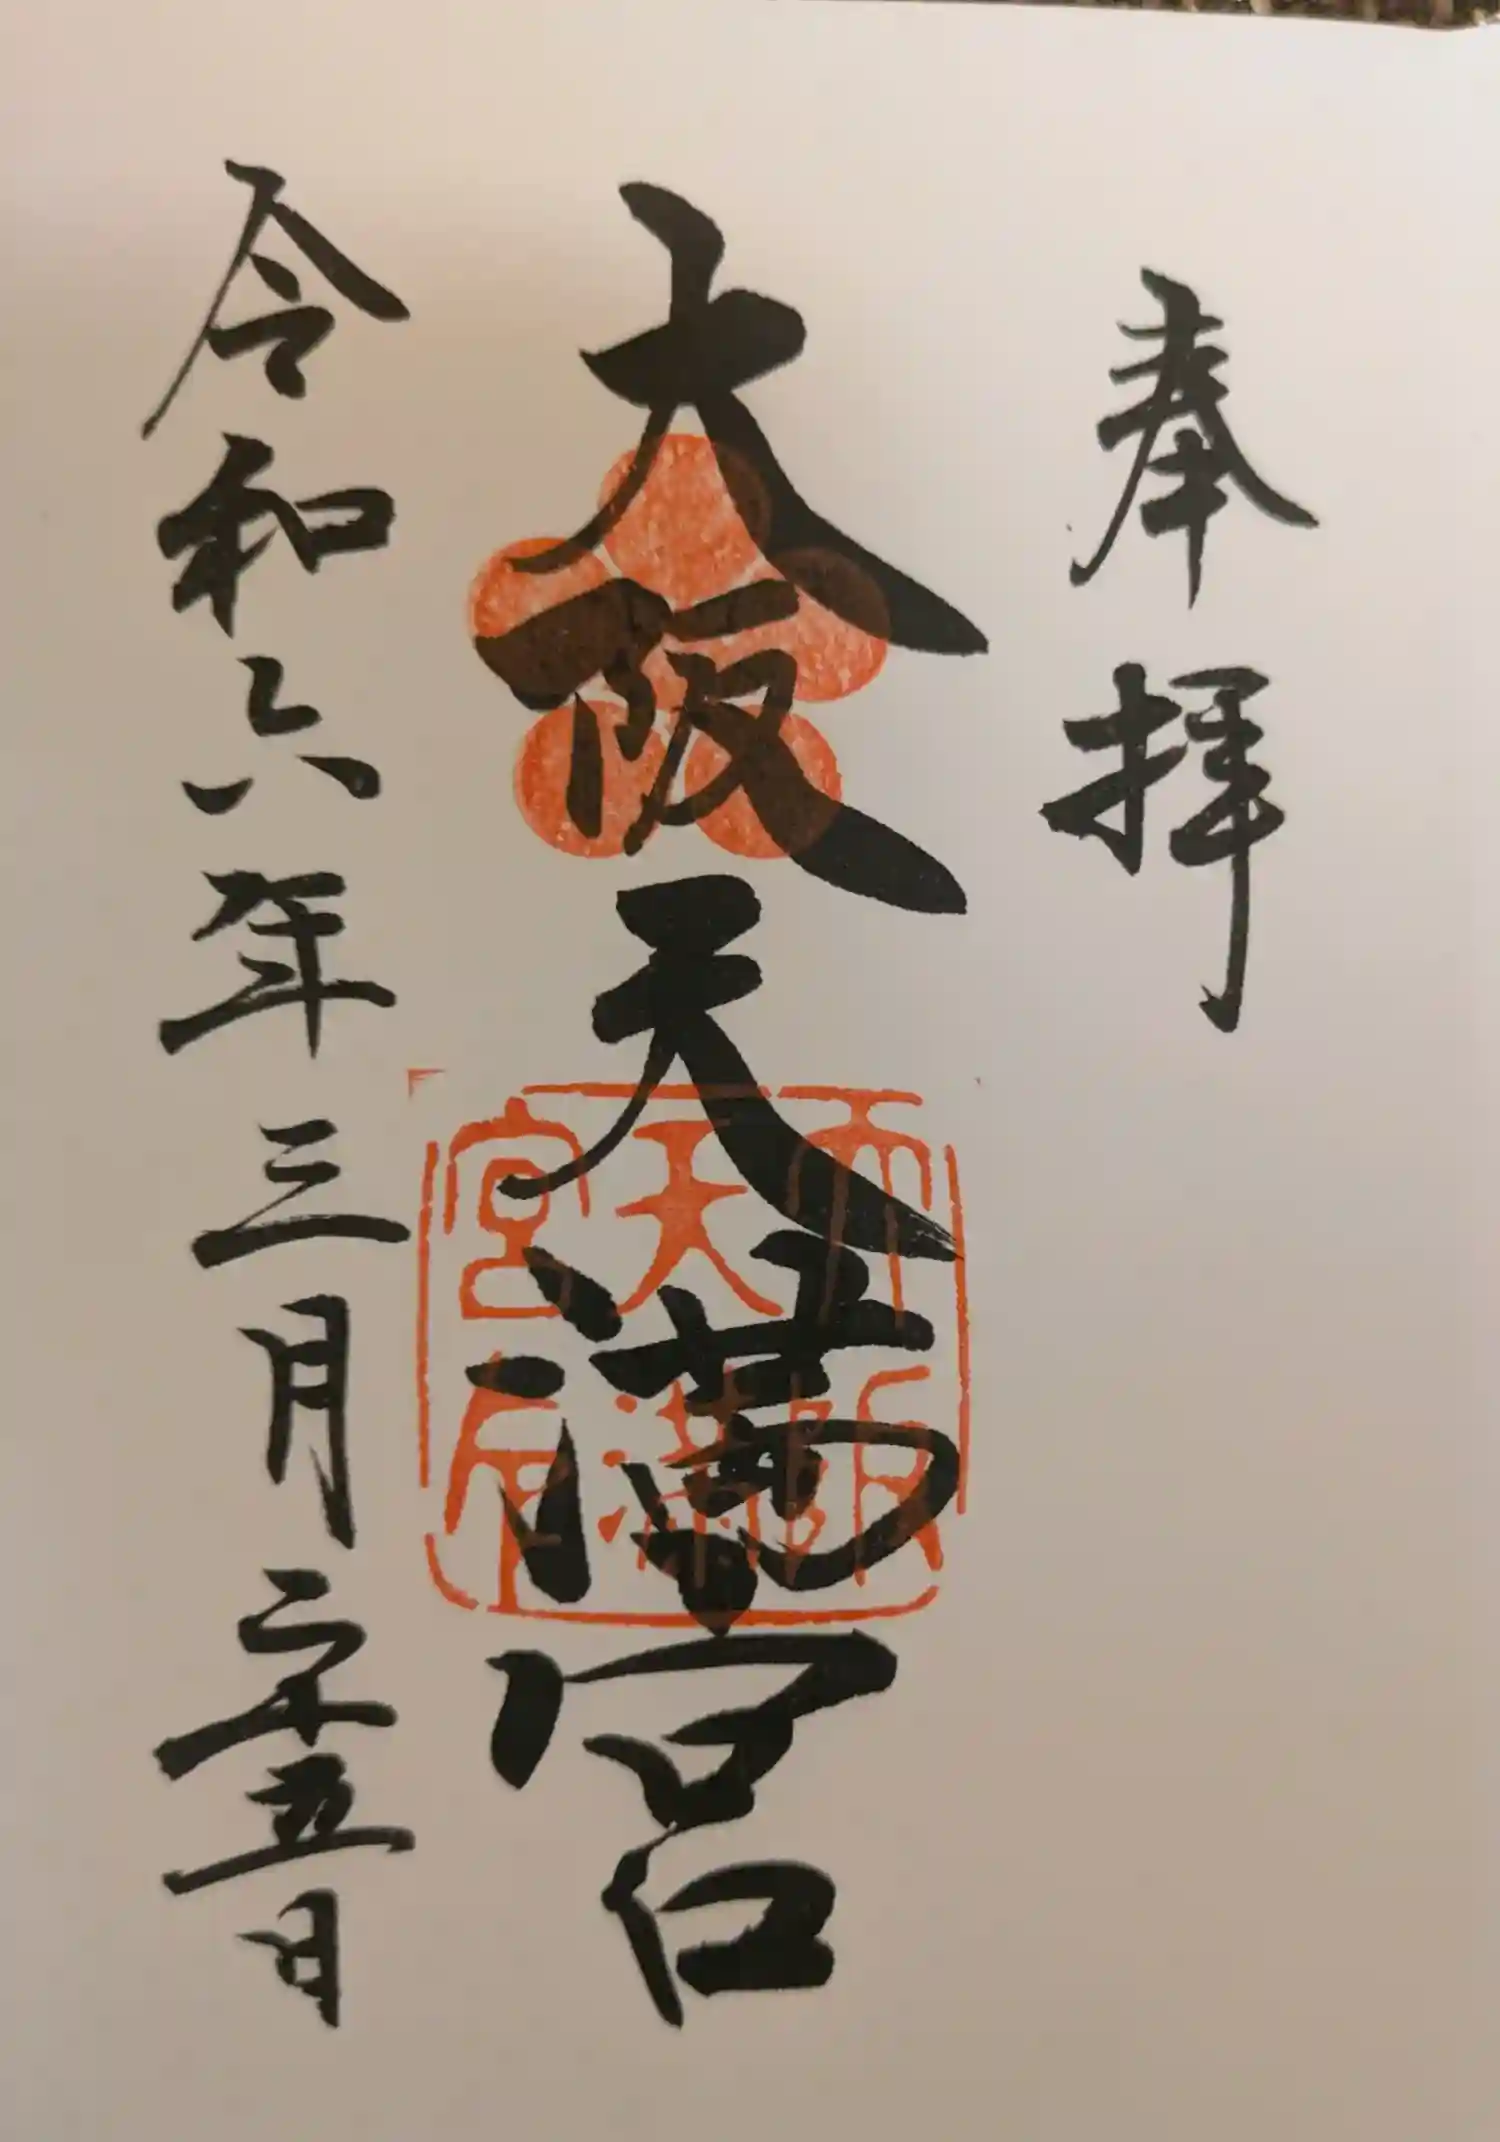 奉拝
大阪天満宮
大阪
天満
宮印
令和六年三月二十五日